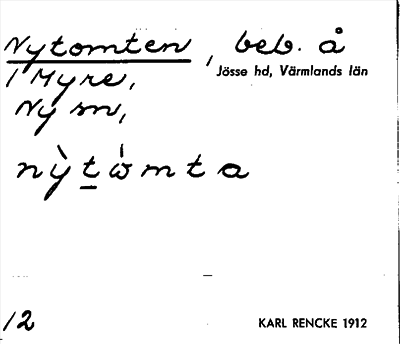 Nytomten, beb. å
Jösse hd, Värmlands län
1 Myre,
Ny sn,
nỳtòmta
12
KARL RENCKE 1912